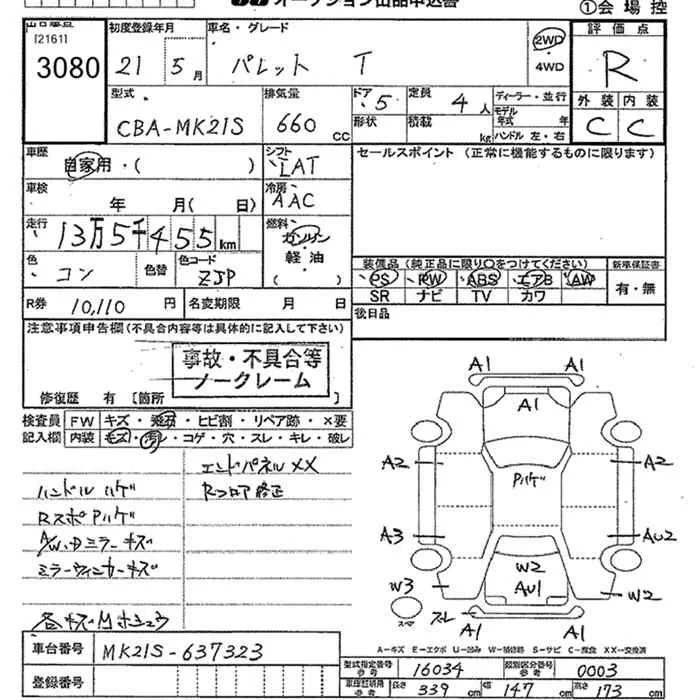 オークション出品申込書
①会場控
出品番号
[2161]
3080
初度登録年月
21年 5月
車名・グレード
パレット T
2WD
4WD
評価点
R
外装 内装
C C
型式
CBA-MK21S
排気量
660 cc
ドア 5
形状
定員 4人
積載 kg
ディーラー・並行
モデル年式 年
ハンドル 左・右
車歴
自家用・( )
シフト
LAT
セールスポイント (正常に機能するものに限ります)
車検
年 月( 日)
冷房
AAC
走行
13万5千455km
燃料
ガソリン
軽油
( )
色
コン
色替
色コード
ZJP
装備品 (純正品に限り○をつけてください)
新車保証書
PS RW ABS エアB AW
SR ナビ TV カワ
有・無
R券 10,110 円
名変期限 月 日
後日品
注意事項申告欄(不具合内容等は具体的に記入して下さい)
事故・不具合等
ノークレーム
修復歴 有 [箇所
検査員
記入欄
FW キズ・飛石・ヒビ割・リペア跡・×要
内装 キズ・汚レ・コゲ・穴・スレ・キレ・破レ
エンドパネルXX
ハンドルハゲ
Rフロア修正
RスポPハゲ
A/W・Dミラーキズ
ミラーウィンカーキズ
各キズM
A1 A1
A1
A2 A2
Pハゲ
A3 AU2
W2
AU1
W3 W2
スレ
スマ
A1 A1
A－キズ E－エクボ U－凹み W－補修跡 S－サビ C－腐食 XX－交換済
車台番号 MK21S-637323
登録番号
型式指定番号
参考
16034
類別区分番号
参考
0003
車庫証明用
参考
長さ 339 cm 幅 147 cm 高さ 173 cm